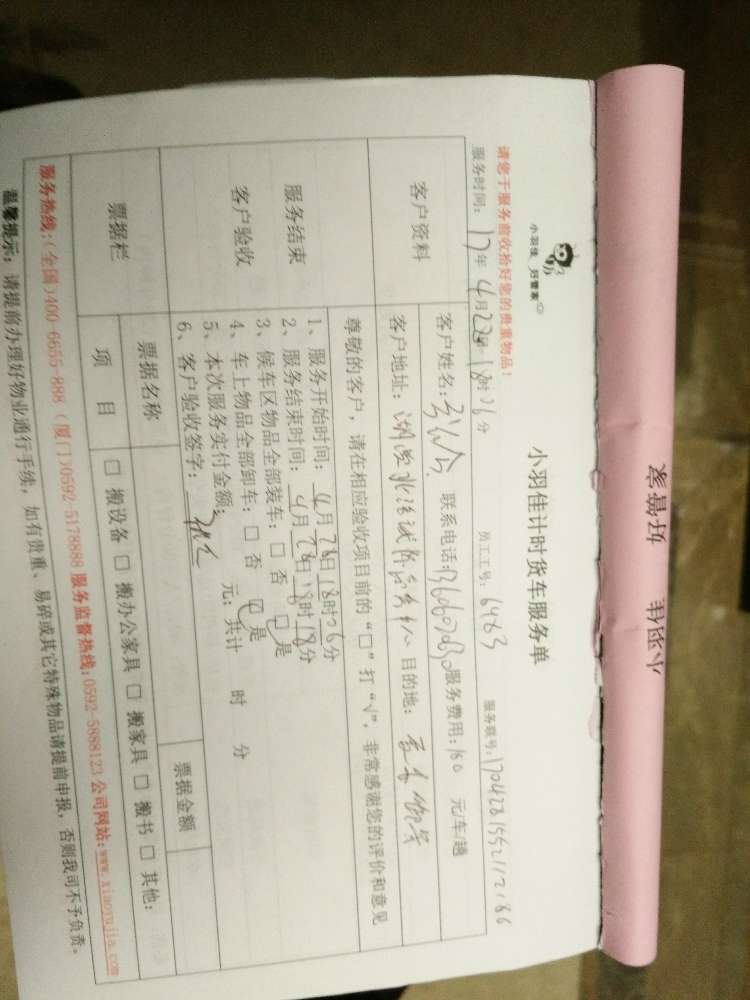 小羽佳 好管家
小羽佳 好管家
小羽佳计时货车服务单
请您于服务前收拾好您的贵重物品!
服务时间: 17年 4月 28日 18时06分 员工工号: 6483 服务联号: 1704281552112186
客户资料
客户姓名: 联系电话: 服务费用: 180 元/车/趟
客户地址: 目的地:
服务结束
客户验收
尊敬的客户,请在相应验收项目前的“□”打“√”,非常感谢您的评价和意见
1、服务开始时间: 4月28日18时06分
2、服务结束时间: 4月28日18时18分
3、候车区物品全部装车: □ 否 □ 是
4、车上物品全部卸车: □ 否 □ 是
5、本次服务实付金额: 元; 共计 时 分
6、客户验收签字:
票据栏
票据名称
票据金额
项 目
□ 搬设备 □ 搬办公家具 □ 搬家具 □ 搬书 □ 其他:
服务热线:(全国)400-6655-888 (厦门)0592-5178888 服务监督热线:0592-5888123 公司网站:www.xiaoyujia.com
温馨提示: 请提前办理好物业通行手续,如有贵重、易碎或其它特殊物品请提前申报,否则我司不予负责。